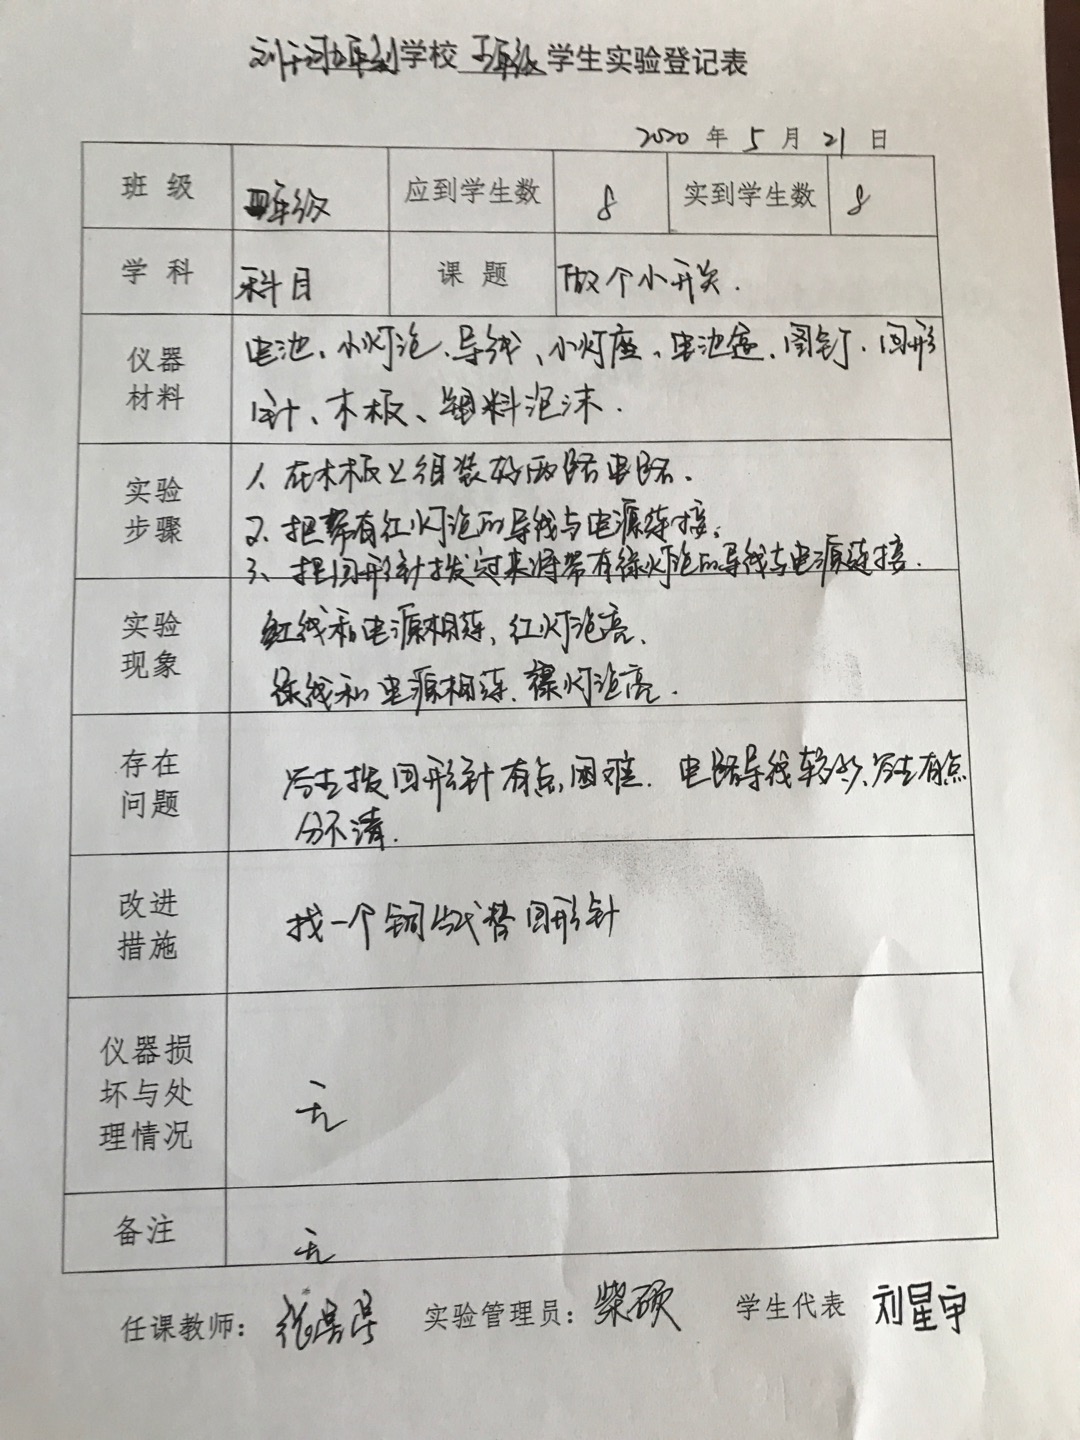 学校 年级 学生实验登记表
2020 年 5 月 21 日
班 级 四年级 应到学生数 8 实到学生数 8
学 科 科目 课 题 做个小开关.
仪器 电池、小灯泡、导线、小灯座、电池盒、图钉、回形
材料 针、木板、塑料泡沫.
实验 1、在木板上组装好两路电路.
步骤 2、把带有红灯泡的导线与电源连接;
3、把回形针拨过来将带有绿灯泡的导线与电源连接.
实验 红线和电源相连、红灯泡亮.
现象 绿线和电源相连、绿灯泡亮.
存在 学生拨回形针有点困难. 电路导线较多、学生有点
问题 分不清.
改进 找一个铜 代替回形针
措施
仪器损
坏与处 无
理情况
备注 无
任课教师: 实验管理员: 柴硕 学生代表 刘星宇